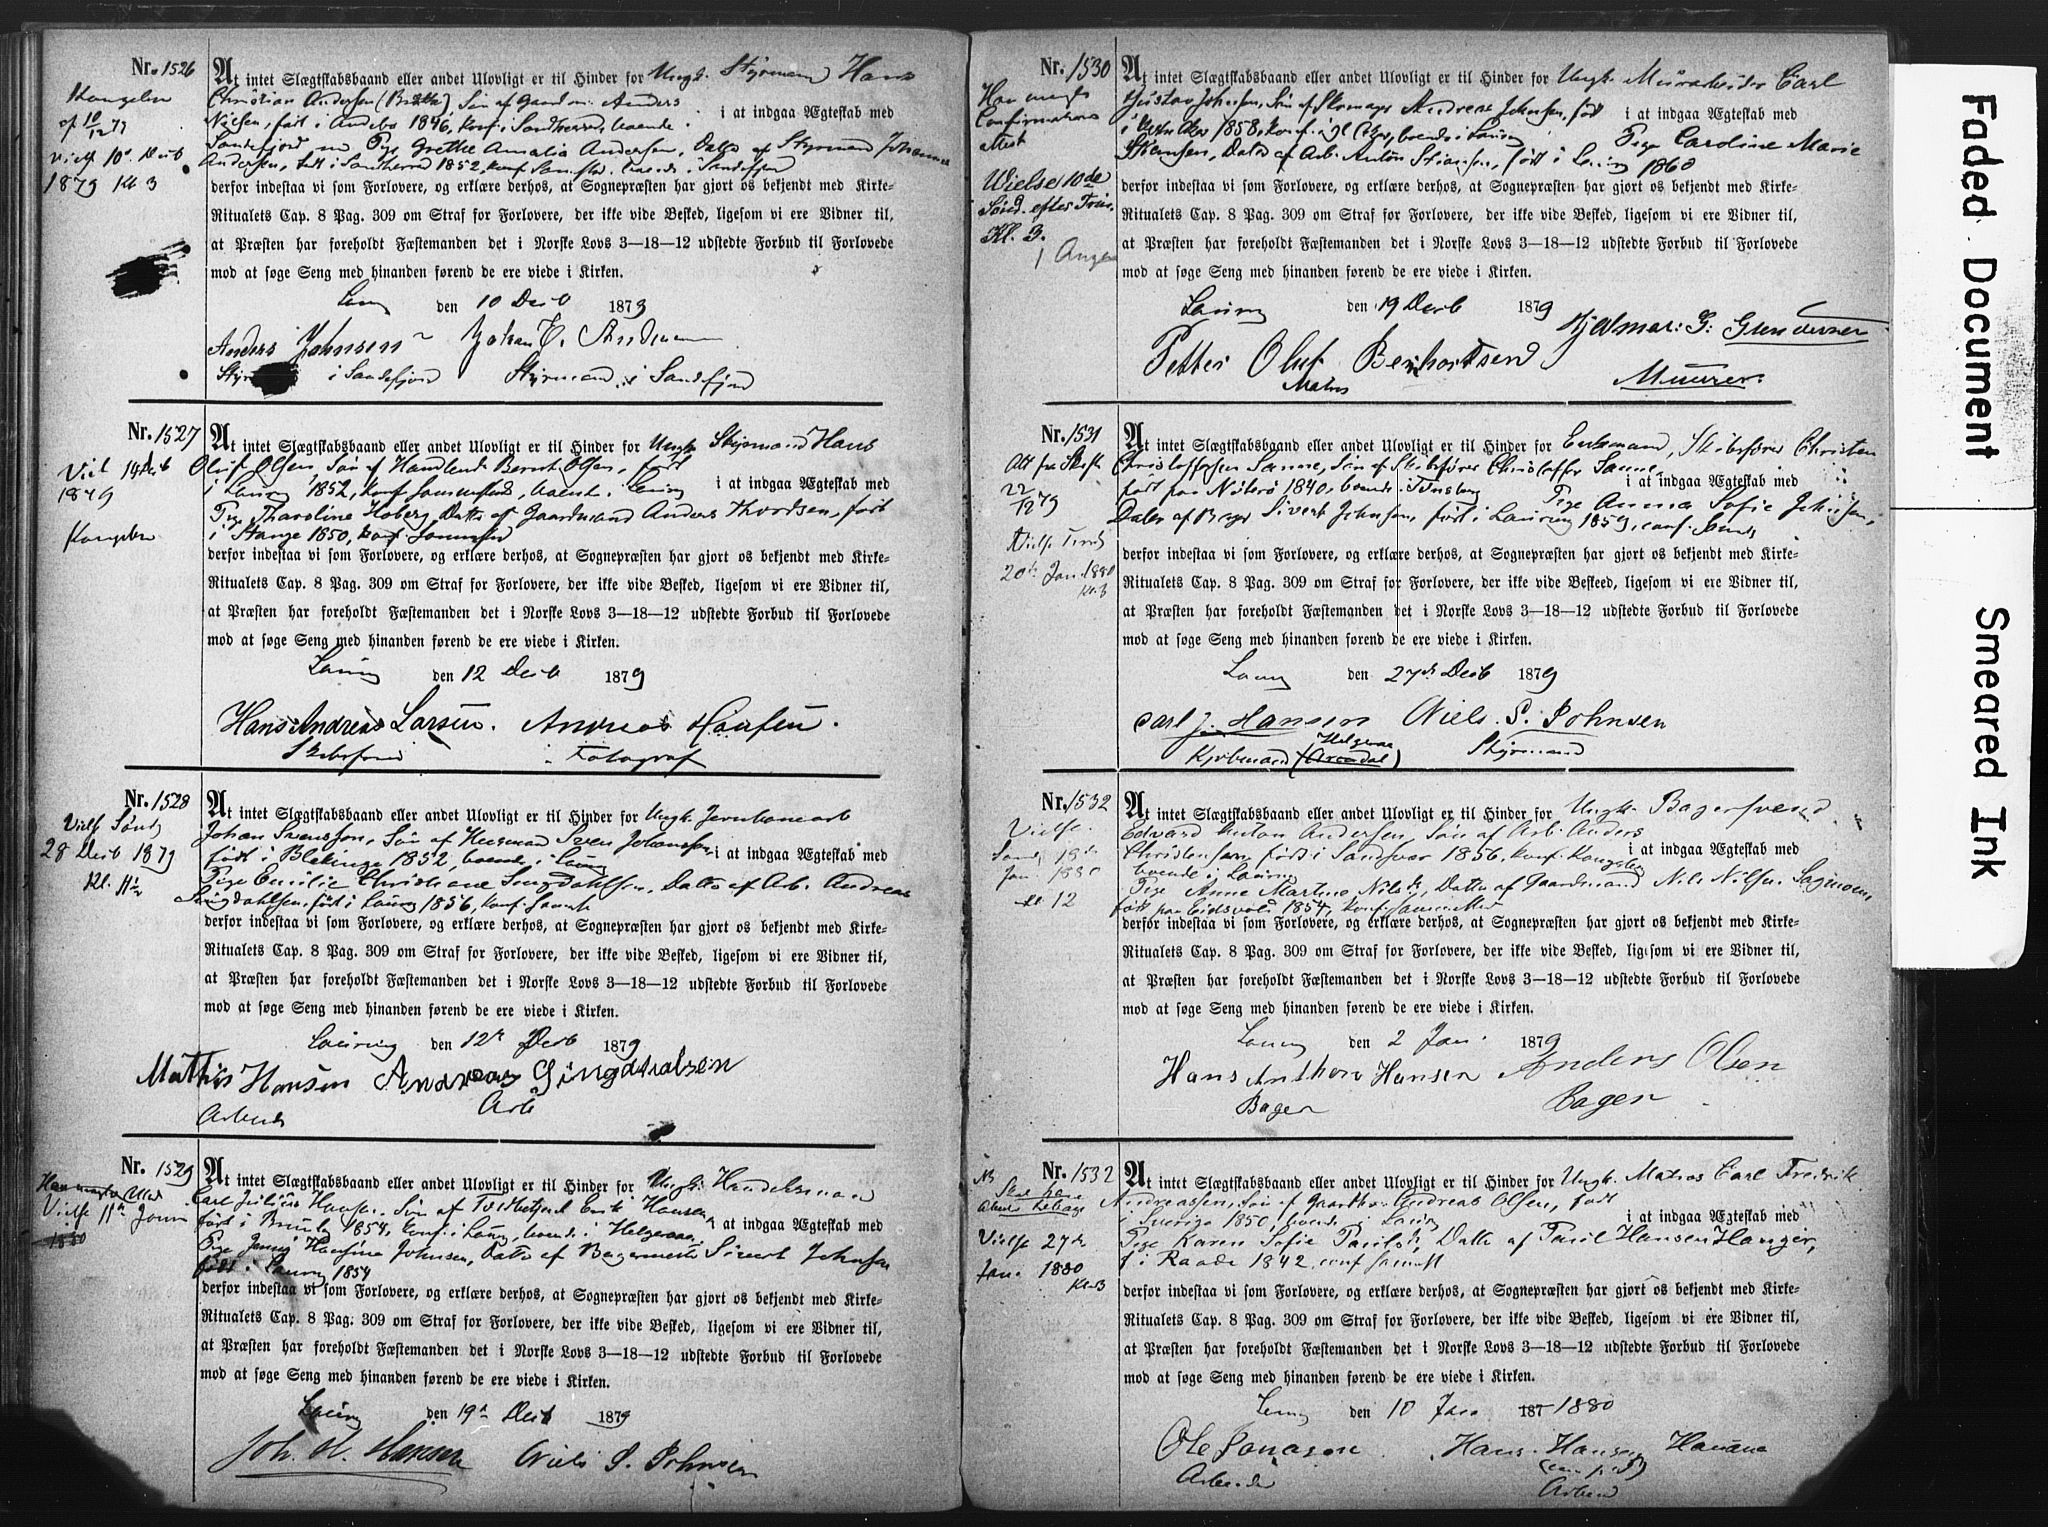 Nr. 1526
At intet Slægtskabsbaand eller andet Ulovligt er til Hinder for Ungk. Styrmand Hans
Christian Andersen Søn af Gaardm. Anders
Nielsen, født i Andebo 1846, konf. i Sandherred, boende i at indgaa Ægteskab med
Sandefjord Pige Grethe Amalia Andersen, Datter af Styrmand Johannes
Andersen, født i Sandherred 1852, konf. boende i Sandefjord
derfor indestaa vi som Forlovere, og erklære derhos, at Sognepræsten har gjort os bekjendt med Kirke-
Ritualets Cap. 8 Pag. 309 om Straf for Forlovere, der ikke vide Besked, ligesom vi ere Vidner til,
at Præsten har foreholdt Fæstemanden det i Norske Lovs 3—18—12 udstedte Forbud til Forlovede
mod at søge Seng med hinanden førend de ere viede i Kirken.
den 10 Decb 1879
Anders Johnsen Johan E. Andersen
i Sandefjord Styrmand i Sandefjord
Kongebrev
af 10/12 79
Viet 10de Decb
1879 Kl 3
Nr. 1527
At intet Slægtskabsbaand eller andet Ulovligt er til Hinder for Ungk. Styrmand Hans
Oluf Olsen, Søn af Handlende Bernt Olsen, født
i Laurvig 1852, konf. sammesteds, boende i Laurvig i at indgaa Ægteskab med
Pige Tharoline Hoberg Datter af Gaardmand Anders Thordsen, født
i Stange 1850, konf. sammesteds
derfor indestaa vi som Forlovere, og erklære derhos, at Sognepræsten har gjort os bekjendt med Kirke-
Ritualets Cap. 8 Pag. 309 om Straf for Forlovere, der ikke vide Besked, ligesom vi ere Vidner til,
at Præsten har foreholdt Fæstemanden det i Norske Lovs 3—18—12 udstedte Forbud til Forlovede
mod at søge Seng med hinanden førend de ere viede i Kirken.
Laurvig den 12 Decb 1879
Hans Andreas Larsen. Andreas Hansen.
Skibsfører Fotograf
Viet 14 Decb
1879
Kongebrev
Nr. 1528
At intet Slægtskabsbaand eller andet Ulovligt er til Hinder for Ungk. Jernbanearb
Johan Svensson, Søn af Husmand Sven Johansson
født i Blekinge 1852, boende i Laurvig i at indgaa Ægteskab med
Pige Emilie Christiane Singdahlsen, Datter af Arb. Andreas
Singdahlsen, født i Laurvig 1856, konf. samst
derfor indestaa vi som Forlovere, og erklære derhos, at Sognepræsten har gjort os bekjendt med Kirke-
Ritualets Cap. 8 Pag. 309 om Straf for Forlovere, der ikke vide Besked, ligesom vi ere Vidner til,
at Præsten har foreholdt Fæstemanden det i Norske Lovs 3—18—12 udstedte Forbud til Forlovede
mod at søge Seng med hinanden førend de ere viede i Kirken.
Laurvig den 12te Decb 1879
Mathis Hansen Andreas Singdalsen
Arbeider Arb
Vielse Sønd
28 Decb 1879
Kl. 11½
Nr. 1529
At intet Slægtskabsbaand eller andet Ulovligt er til Hinder for Ungk. Handelsmand
Carl Julius Hansen Søn af Toldbetjent Erik Hansen
født i Brunla 1854, konf. i Laurvig, boende i Helgeraa i at indgaa Ægteskab med
Pige Jenny Hansine Johnsen, Datter af Bagermester Sivert Johnsen
født i Laurvig 1854
derfor indestaa vi som Forlovere, og erklære derhos, at Sognepræsten har gjort os bekjendt med Kirke-
Ritualets Cap. 8 Pag. 309 om Straf for Forlovere, der ikke vide Besked, ligesom vi ere Vidner til,
at Præsten har foreholdt Fæstemanden det i Norske Lovs 3—18—12 udstedte Forbud til Forlovede
mod at søge Seng med hinanden førend de ere viede i Kirken.
Laurvig den 19de Decb 1879
Joh. H. Hansen Niels S. Johnsen
Vielse 11te Januar
1880
Nr. 1530
At intet Slægtskabsbaand eller andet Ulovligt er til Hinder for Ungk. Murarbeider Carl
Gustav Johnsen, Søn af Skomager Andreas Johnsen, født
i 1858, konf. boende i Laurvig i at indgaa Ægteskab med
Pige Caroline Marie
Stiansen, Datter af Arb. Anton Stiansen, født i Laurvig 1860
derfor indestaa vi som Forlovere, og erklære derhos, at Sognepræsten har gjort os bekjendt med Kirke-
Ritualets Cap. 8 Pag. 309 om Straf for Forlovere, der ikke vide Besked, ligesom vi ere Vidner til,
at Præsten har foreholdt Fæstemanden det i Norske Lovs 3—18—12 udstedte Forbud til Forlovede
mod at søge Seng med hinanden førend de ere viede i Kirken.
Laurvig den 19 Decb 1879
Petter Oluf Berhartsen Hjelmar: G: Grenderner
Matros Muurer
Han mangler
Confirmations
Attest
Vielse 10de
Sønd. efter Trin.
Kl. 3.
Nr. 1531
At intet Slægtskabsbaand eller andet Ulovligt er til Hinder for Enkemand, Skibsfører Christen
Christoffersen Sanne, Søn af Skibsfører Christoffer Sanne
født paa Nøterø 1840, boende i Tønsberg i at indgaa Ægteskab med
Pige Anna Sofie Johnsen,
Datter af Bager Sivert Johnsen, født i Laurvig 1859, conf. samst
derfor indestaa vi som Forlovere, og erklære derhos, at Sognepræsten har gjort os bekjendt med Kirke-
Ritualets Cap. 8 Pag. 309 om Straf for Forlovere, der ikke vide Beskeed, ligesom vi ere Vidner til,
at Præsten har foreholdt Fæstemanden det i Norske Lovs 3—18—12 udstedte Forbud til Forlovede
mod at søge Seng med hinanden førend de ere viede i Kirken.
Laurvig den 27de Decb 1879
Carl J. Hansen Niels. S. Johnsen
Kjøbmand (Helgeraa) Styrmand
Att fra Skifte
22/12 79
Vielse Tirsd
20de Jan. 1880
Kl. 3
Nr. 1532
At intet Slægtskabsbaand eller andet Ulovligt er til Hinder for Ungk. Bagersvend
Edvard Anton Andersen, Søn af Arb. Anders
Christensen, født i Sandsvær 1856, konf. Kongsberg i at indgaa Ægteskab med
boende i Laurvig
Pige Anne Martine Nilsd., Datter af Gaardmand Nils Nilsen Sagmoen,
født paa Eidsvold 1854, konf. sammested
derfor indestaa vi som Forlovere, og erklære derhos, at Sognepræsten har gjort os bekjendt med Kirke-
Ritualets Cap. 8 Pag. 309 om Straf for Forlovere, der ikke vide Besked, ligesom vi ere Vidner til,
at Præsten har foreholdt Fæstemanden det i Norske Lovs 3—18—12 udstedte Forbud til Forlovede
mod at søge Seng med hinanden førend de ere viede i Kirken.
Laurvig den 2 Jan. 1879
Hans Anthon Hansen Anders Olsen
Bager Bager
Vielse
Sønd 18de
Jan. 1880
Kl 12
Nr. 1532
At intet Slægtskabsbaand eller andet Ulovligt er til Hinder for Ungk. Matros Carl Fredrik
Andreassen, Søn af Andreas Olsen, født
i Sverige 1850, boende i Laurvig i at indgaa Ægteskab med
Pige Karen Sofie Paulsd., Datter af Paul Hansen Hanger,
f. i Raade 1842, conf samst
derfor indestaa vi som Forlovere, og erklære derhos, at Sognepræsten har gjort os bekjendt med Kirke-
Ritualets Cap. 8 Pag. 309 om Straf for Forlovere, der ikke vide Besked, ligesom vi ere Vidner til,
at Præsten har foreholdt Fæstemanden det i Norske Lovs 3—18—12 udstedte Forbud til Forlovede
mod at søge Seng med hinanden førend de ere viede i Kirken.
den 10 Jan 187 1880
Ole Jonasen Hans Hansen Hauane
Arbeider (m. p. P.)
Arbeid
NB
Skal have
Attest tilbage
Vielse 27de
Jan. 1880
Kl. 3
Faded Document
Smeared Ink